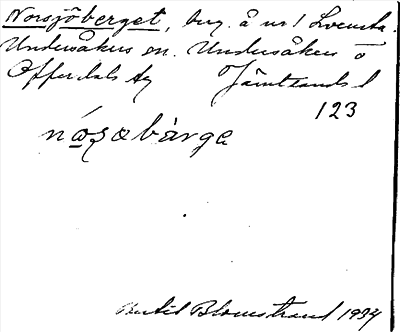 Norsjöberget, bvg. å nr 1 Svensta.
Undersåkers sn. Undersåkers o
Offerdals tg Jämtlands l
123
nóṣəbàrgə
Bertil Blomstrand 1934